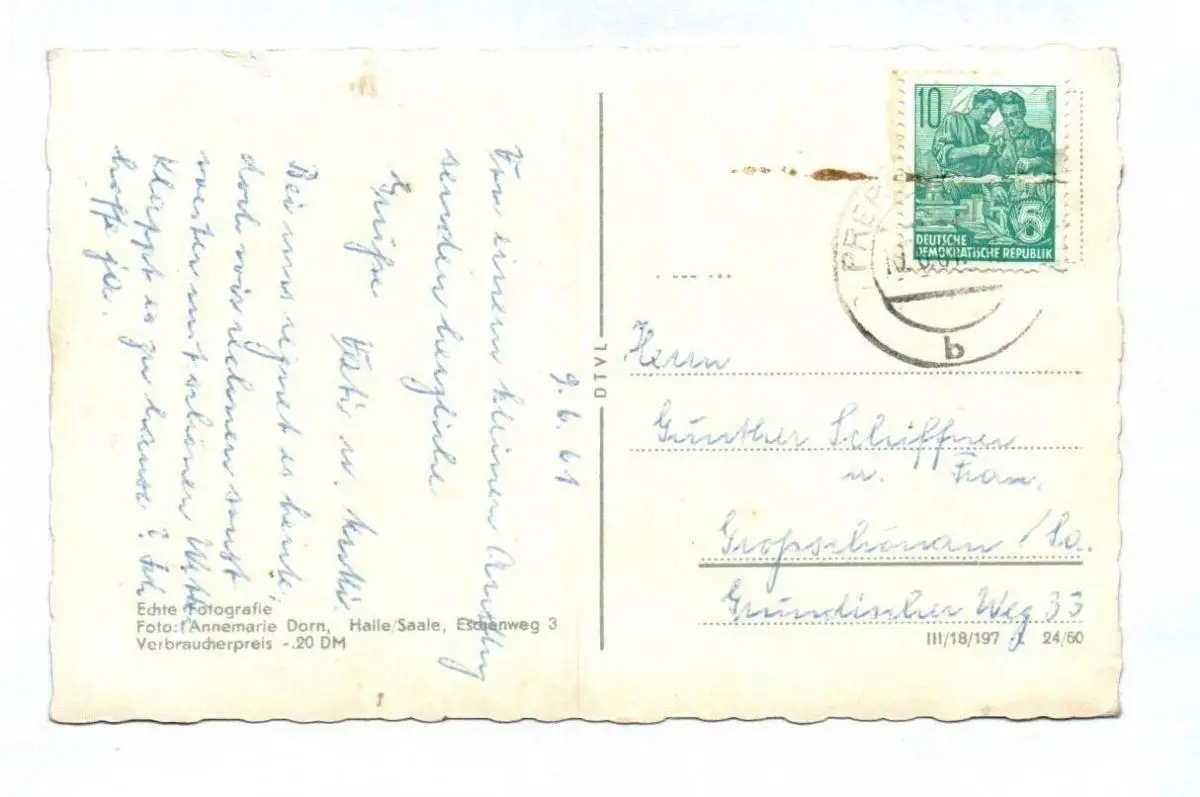 9. 6. 61
Von einem kleinen Ausflug
senden herzliche
Grüße Vati u. Mutti.
Bei uns regnet es heute,
doch wir rechnen sonst
weiter mit schönen Wett.
Klappt es zu hause? Ich
hoffe ja.
Echte Fotografie
Foto: Annemarie Dorn, Halle/Saale, Eschenweg 3
Verbraucherpreis -.20 DM
DIVAL
10
5
DEUTSCHE
DEMOKRATISCHE REPUBLIK
PRER
b
Herrn
Günther Schiffner
u. Frau.
Großschönau /Sa.
Grundischer Weg 33
III/18/197 24/60